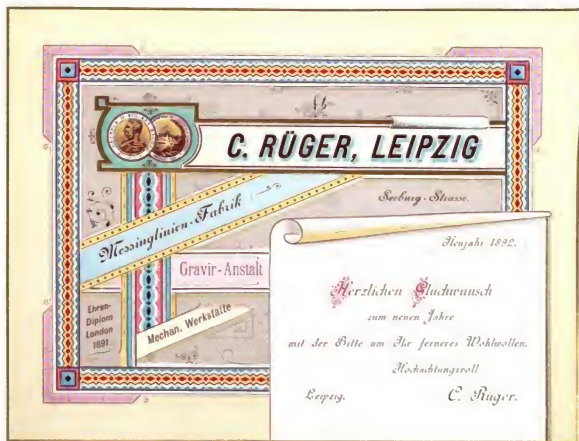 C. RÜGER, LEIPZIG
Seeburg-Strasse.
Messinglinien-Fabrik
Gravir-Anstalt
Mechan. Werkstätte
Ehren-
Diplom
London
1891
Neujahr 1892.
Herzlichen Glückwunsch
zum neuen Jahre
mit der Bitte um Ihr ferneres Wohlwollen.
Hochachtungsvoll
Leipzig. C. Rüger.